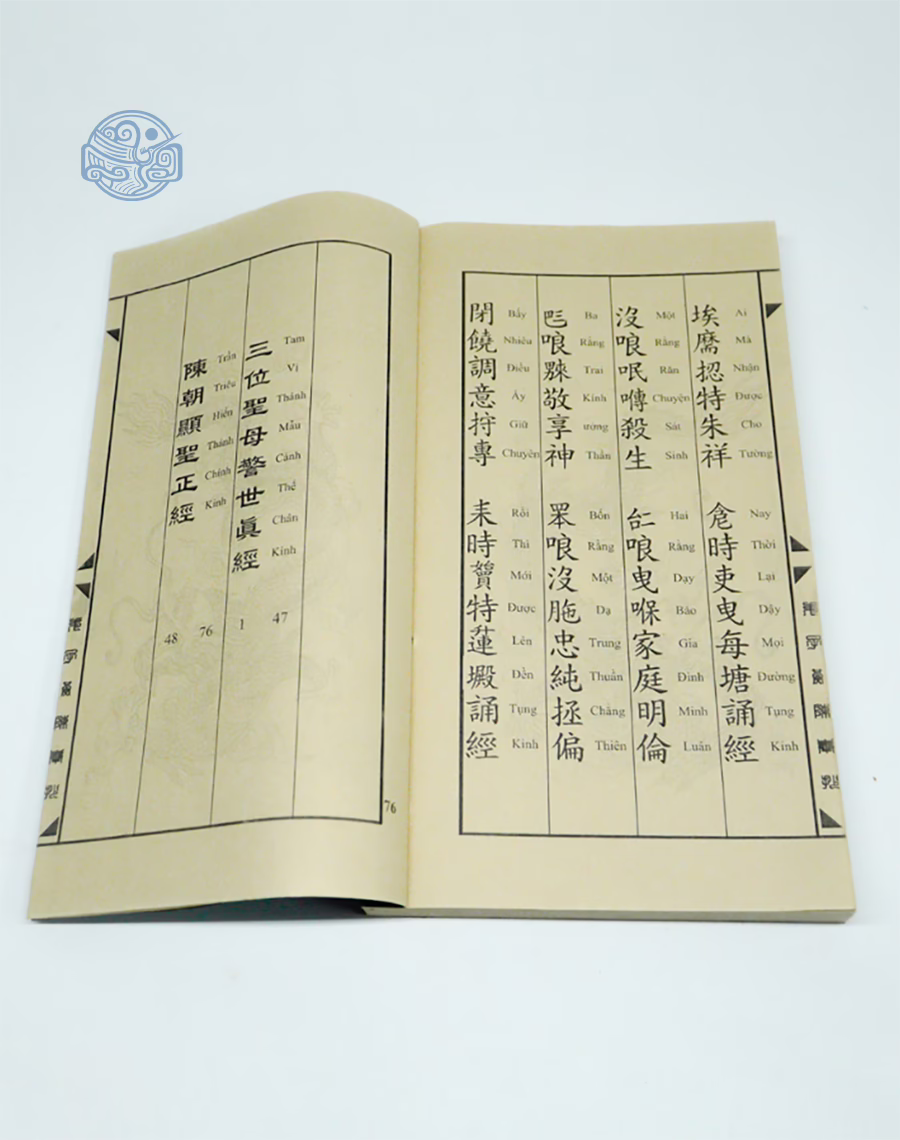 埃特朱祥
Ai Mà Nhận Được Cho Tường
時吏曳每塘誦經
Nay Thời Lại Dậy Mọi Đường Tụng Kinh
沒哴囀殺生
Một Rằng Răn Chuyện Sát Sinh
哴曳家庭明倫
Hai Rằng Dạy Bảo Gia Đình Minh Luân
哴敬享神
Ba Rằng Trai Kính ưởng Thần
哴沒忠純拯偏
Bốn Rằng Một Dạ Trung Thuần Chẳng Thiên
閉饒調意專
Bấy Nhiêu Điều Ấy Giữ Chuyên
耒時特蓮誦經
Rồi Thì Mới Được Lên Đền Tụng Kinh
三位聖母警世眞經
Tam Vị Thánh Mẫu Cảnh Thế Chân Kinh
1 47
陳朝顯聖正經
Trần Triều Hiển Thánh Chính Kinh
48 76
76